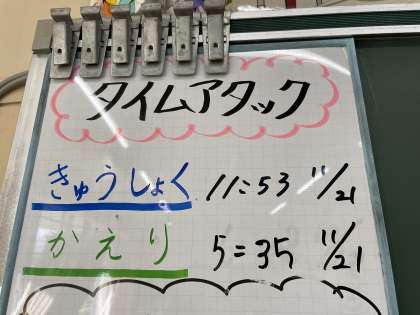 タイムアタック
きゅうしょく 11:53 11/21
かえり 5:35 11/21